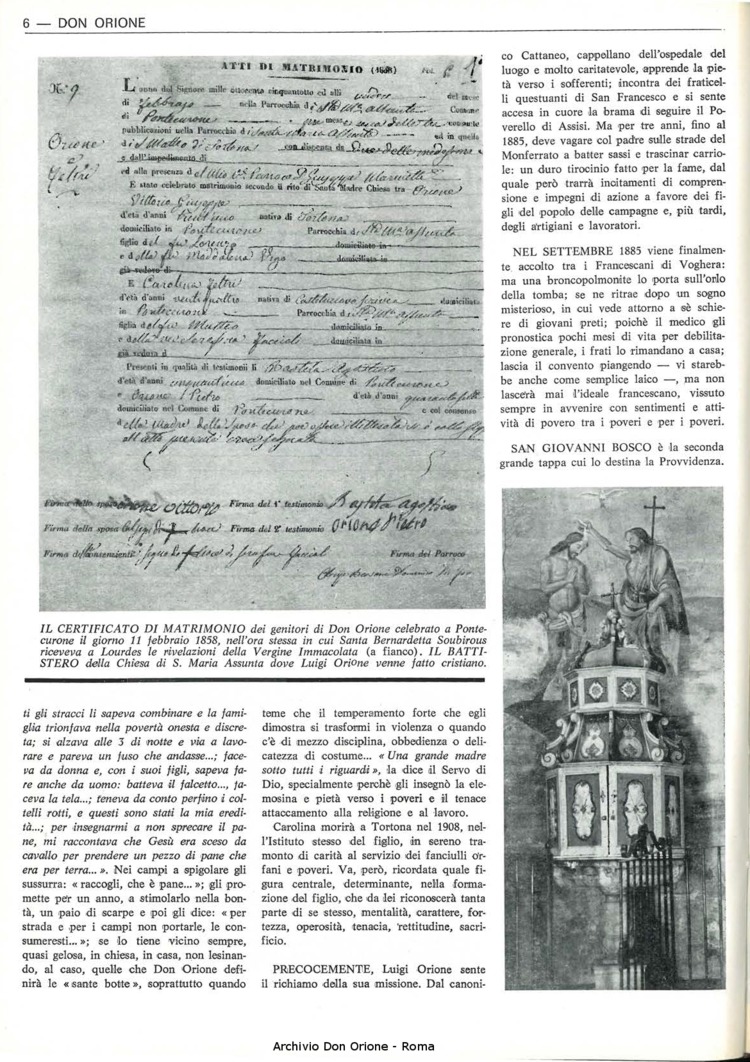 6 — DON ORIONE
ATTI DI MATRIMONIO (1858)
N.° 9
L'anno del Signore mille ottocento cinquantotto ed alli undici del mese
di febbrajo nella Parrocchia di Sta Ma assunta Comune
di Pontecurone
pubblicazioni nella Parrocchia di Santa Maria Assunta ed in quella
di S. Matteo di Tortona con dispensa da
e dall'impedimento di
ed alla presenza
E stato celebrato matrimonio secondo il rito di Santa Madre Chiesa tra Orione
Vittorio Giuseppe
d'età d'anni nativo di Tortona
domiciliato in Pontecurone Parrocchia di Sta Ma assunta
figlio del fu Lorenzo domiciliato in
e della fu Maddalena domiciliata in
già vedovo di
E Carolina Feltri
d'età d'anni ventiquattro nativa di domiciliata
in Pontecurone Parrocchia di Sta Ma assunta
figlia del fu Matteo domiciliato in
e della domiciliata in
già vedova di
Presenti in qualità di testimonii li
d'età d'anni domiciliato nel Comune di Pontecurone
e Orione Pietro d'età d'anni
domiciliato nel Comune di Pontecurone e col consenso
della Madre della sposa che per essere illetterata
Orione
e
Feltri
Firma dello sposo orione vittorio Firma del 1° testimonio agostino
Firma della sposa Firma del 2° testimonio Orione Pietro
Firma del Consenziente Firma del Parroco
IL CERTIFICATO DI MATRIMONIO dei genitori di Don Orione celebrato a Ponte-
curone il giorno 11 febbraio 1858, nell'ora stessa in cui Santa Bernardetta Soubirous
riceveva a Lourdes le rivelazioni della Vergine Immacolata (a fianco). IL BATTI-
STERO della Chiesa di S. Maria Assunta dove Luigi Orione venne fatto cristiano.
ti gli stracci li sapeva combinare e la fami-
glia trionfava nella povertà onesta e discre-
ta; si alzava alle 3 di notte e via a lavo-
rare e pareva un fuso che andasse...; face-
va da donna e, con i suoi figli, sapeva fa-
re anche da uomo: batteva il falcetto..., fa-
ceva la tela...; teneva da conto perfino i col-
telli rotti, e questi sono stati la mia eredi-
tà...; per insegnarmi a non sprecare il pa-
ne, mi raccontava che Gesù era sceso da
cavallo per prendere un pezzo di pane che
era per terra... ». Nei campi a spigolare gli
sussurra: « raccogli, che è pane... »; gli pro-
mette per un anno, a stimolarlo nella bon-
tà, un paio di scarpe e poi gli dice: « per
strada e per i campi non portarle, le con-
sumeresti... »; se lo tiene vicino sempre,
quasi gelosa, in chiesa, in casa, non lesinan-
do, al caso, quelle che Don Orione defi-
nirà le « sante botte », soprattutto quando
teme che il temperamento forte che egli
dimostra si trasformi in violenza o quando
c'è di mezzo disciplina, obbedienza o deli-
catezza di costume... « Una grande madre
sotto tutti i riguardi », la dice il Servo di
Dio, specialmente perchè gli insegnò la ele-
mosina e pietà verso i poveri e il tenace
attaccamento alla religione e al lavoro.
Carolina morirà a Tortona nel 1908, nel-
l'Istituto stesso del figlio, in sereno tra-
monto di carità al servizio dei fanciulli or-
fani e poveri. Va, però, ricordata quale fi-
gura centrale, determinante, nella forma-
zione del figlio, che da lei riconoscerà tanta
parte di se stesso, mentalità, carattere, for-
tezza, operosità, tenacia, rettitudine, sacri-
ficio.
PRECOCEMENTE, Luigi Orione sente
il richiamo della sua missione. Dal canoni-
co Cattaneo, cappellano dell'ospedale del
luogo e molto caritatevole, apprende la pie-
tà verso i sofferenti; incontra dei fraticel-
li questuanti di San Francesco e si sente
accesa in cuore la brama di seguire il Po-
verello di Assisi. Ma per tre anni, fino al
1885, deve vagare col padre sulle strade del
Monferrato a batter sassi e trascinar carrio-
le: un duro tirocinio fatto per la fame, dal
quale però trarrà incitamenti di compren-
sione e impegni di azione a favore dei fi-
gli del popolo delle campagne e, più tardi,
degli artigiani e lavoratori.
NEL SETTEMBRE 1885 viene finalmen-
te accolto tra i Francescani di Voghera:
ma una broncopolmonite lo porta sull'orlo
della tomba; se ne ritrae dopo un sogno
misterioso, in cui vede attorno a sè schie-
re di giovani preti; poichè il medico gli
pronostica pochi mesi di vita per debilita-
zione generale, i frati lo rimandano a casa;
lascia il convento piangendo — vi stareb-
be anche come semplice laico —, ma non
lascerà mai l'ideale francescano, vissuto
sempre in avvenire con sentimenti e atti-
vità di povero tra i poveri e per i poveri.
SAN GIOVANNI BOSCO è la seconda
grande tappa cui lo destina la Provvidenza.
Archivio Don Orione - Roma